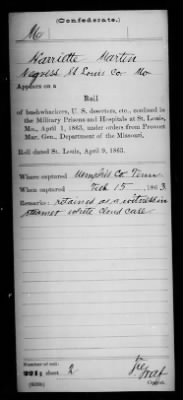 (Confederate.)
M
Harriette Martin
Negress St Louis Co Mo
Appears on a
Roll
of bushwhackers, U. S. deserters, etc., confined in
the Military Prisons and Hospitals at St. Louis,
Mo., April 1, 1863, under orders from Provost
Mar. Gen., Department of the Missouri.
Roll dated St. Louis, April 9, 1863.
Where captured Memphis Co Tenn
When captured Feb 15, 1863.
Remarks: retained as a witness in
steamer White Cloud case
Number of roll:
221; sheet 2
Copyist.